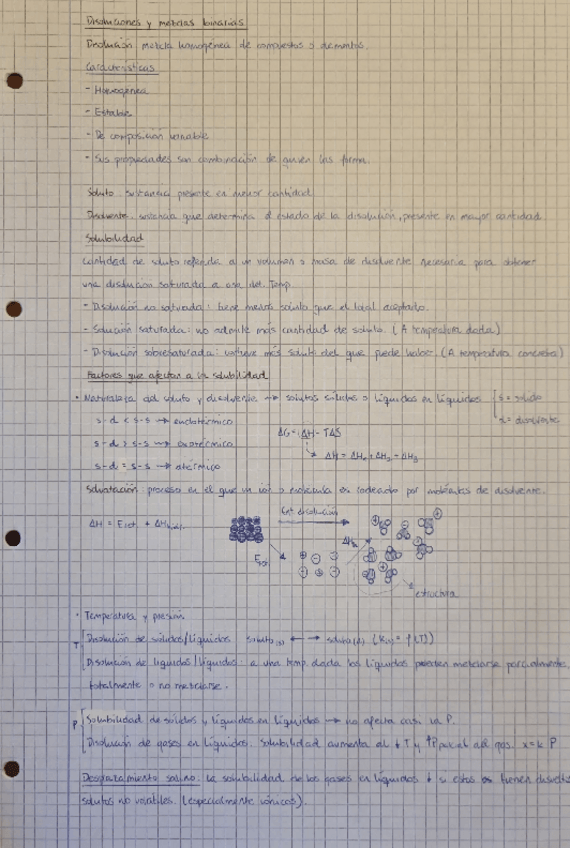 Disoluciones y mezclas binarias
Disolución mezcla homogénea de compuestos o elementos.
Características
- Homogénea
- Estable
- De composición variable
- Sus propiedades son combinación de quien las forma.
Soluto: sustancia presente en menor cantidad
Disolvente: sustancia que determina el estado de la disolución, presente en mayor cantidad
Solubilidad
Cantidad de soluto referida a un volumen o masa de disolvente necesaria para obtener
una disolución saturada a una det. Temp.
- Disolución no saturada: tiene menos soluto que el total aceptado.
- Solución saturada: no admite más cantidad de soluto. (A temperatura dada)
- Disolución sobresaturada: contiene más soluto del que puede haber. (A temperatura concreta)
Factores que afectan a la solubilidad
· Naturaleza del soluto y disolvente → solutos sólidos o líquidos en líquidos { s = soluto
d = disolvente
s-d < s-s → endotérmico
s-d > s-s → exotérmico
s-d = s-s → atérmico
ΔG = ΔH - TΔS
ΔH = ΔH₁ + ΔH₂ - ΔH₃
Solvatación: proceso en el que un ión o molécula es rodeado por moléculas de disolvente.
ΔH = E + ΔH
disolución
ΔH
E
estructura
· Temperatura y presión
T [ Disolución de sólidos/líquidos soluto (s) ↔ soluto (d) (K = f(T))
Disolución de líquidos/líquidos: a una temp dada los líquidos pueden mezclarse parcialmente,
totalmente o no mezclarse.
P [ Solubilidad de sólidos y líquidos en líquidos → no afecta casi la P.
Disolución de gases en líquidos. Solubilidad aumenta al ↓ T y ↑P parcial del gas. x = k P
Desplazamiento salino: la solubilidad de los gases en líquidos ↓ si estos tienen disueltos
solutos no volátiles. (especialmente iónicos).